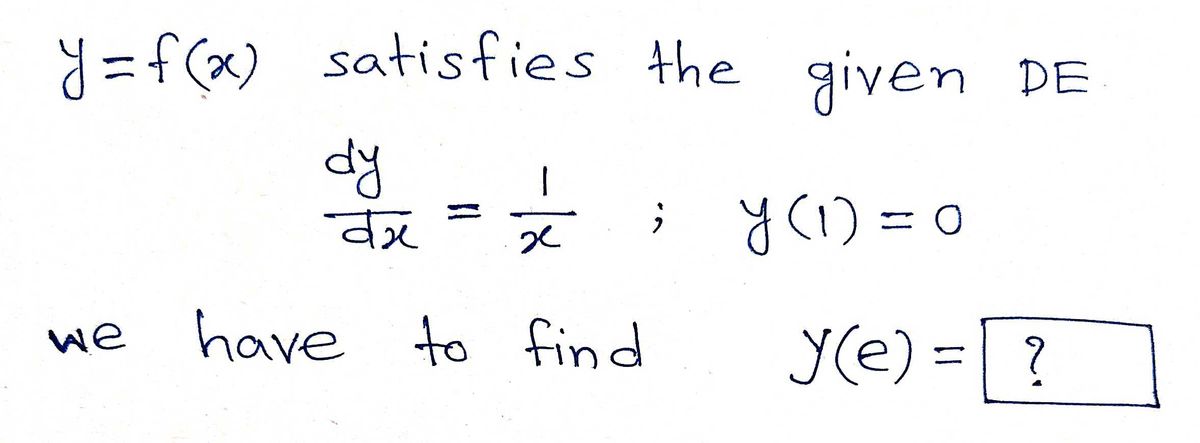 y = f(x) satisfies the given DE
dy/dx = 1/x ; y(1) = 0
we have to find y(e) = ?